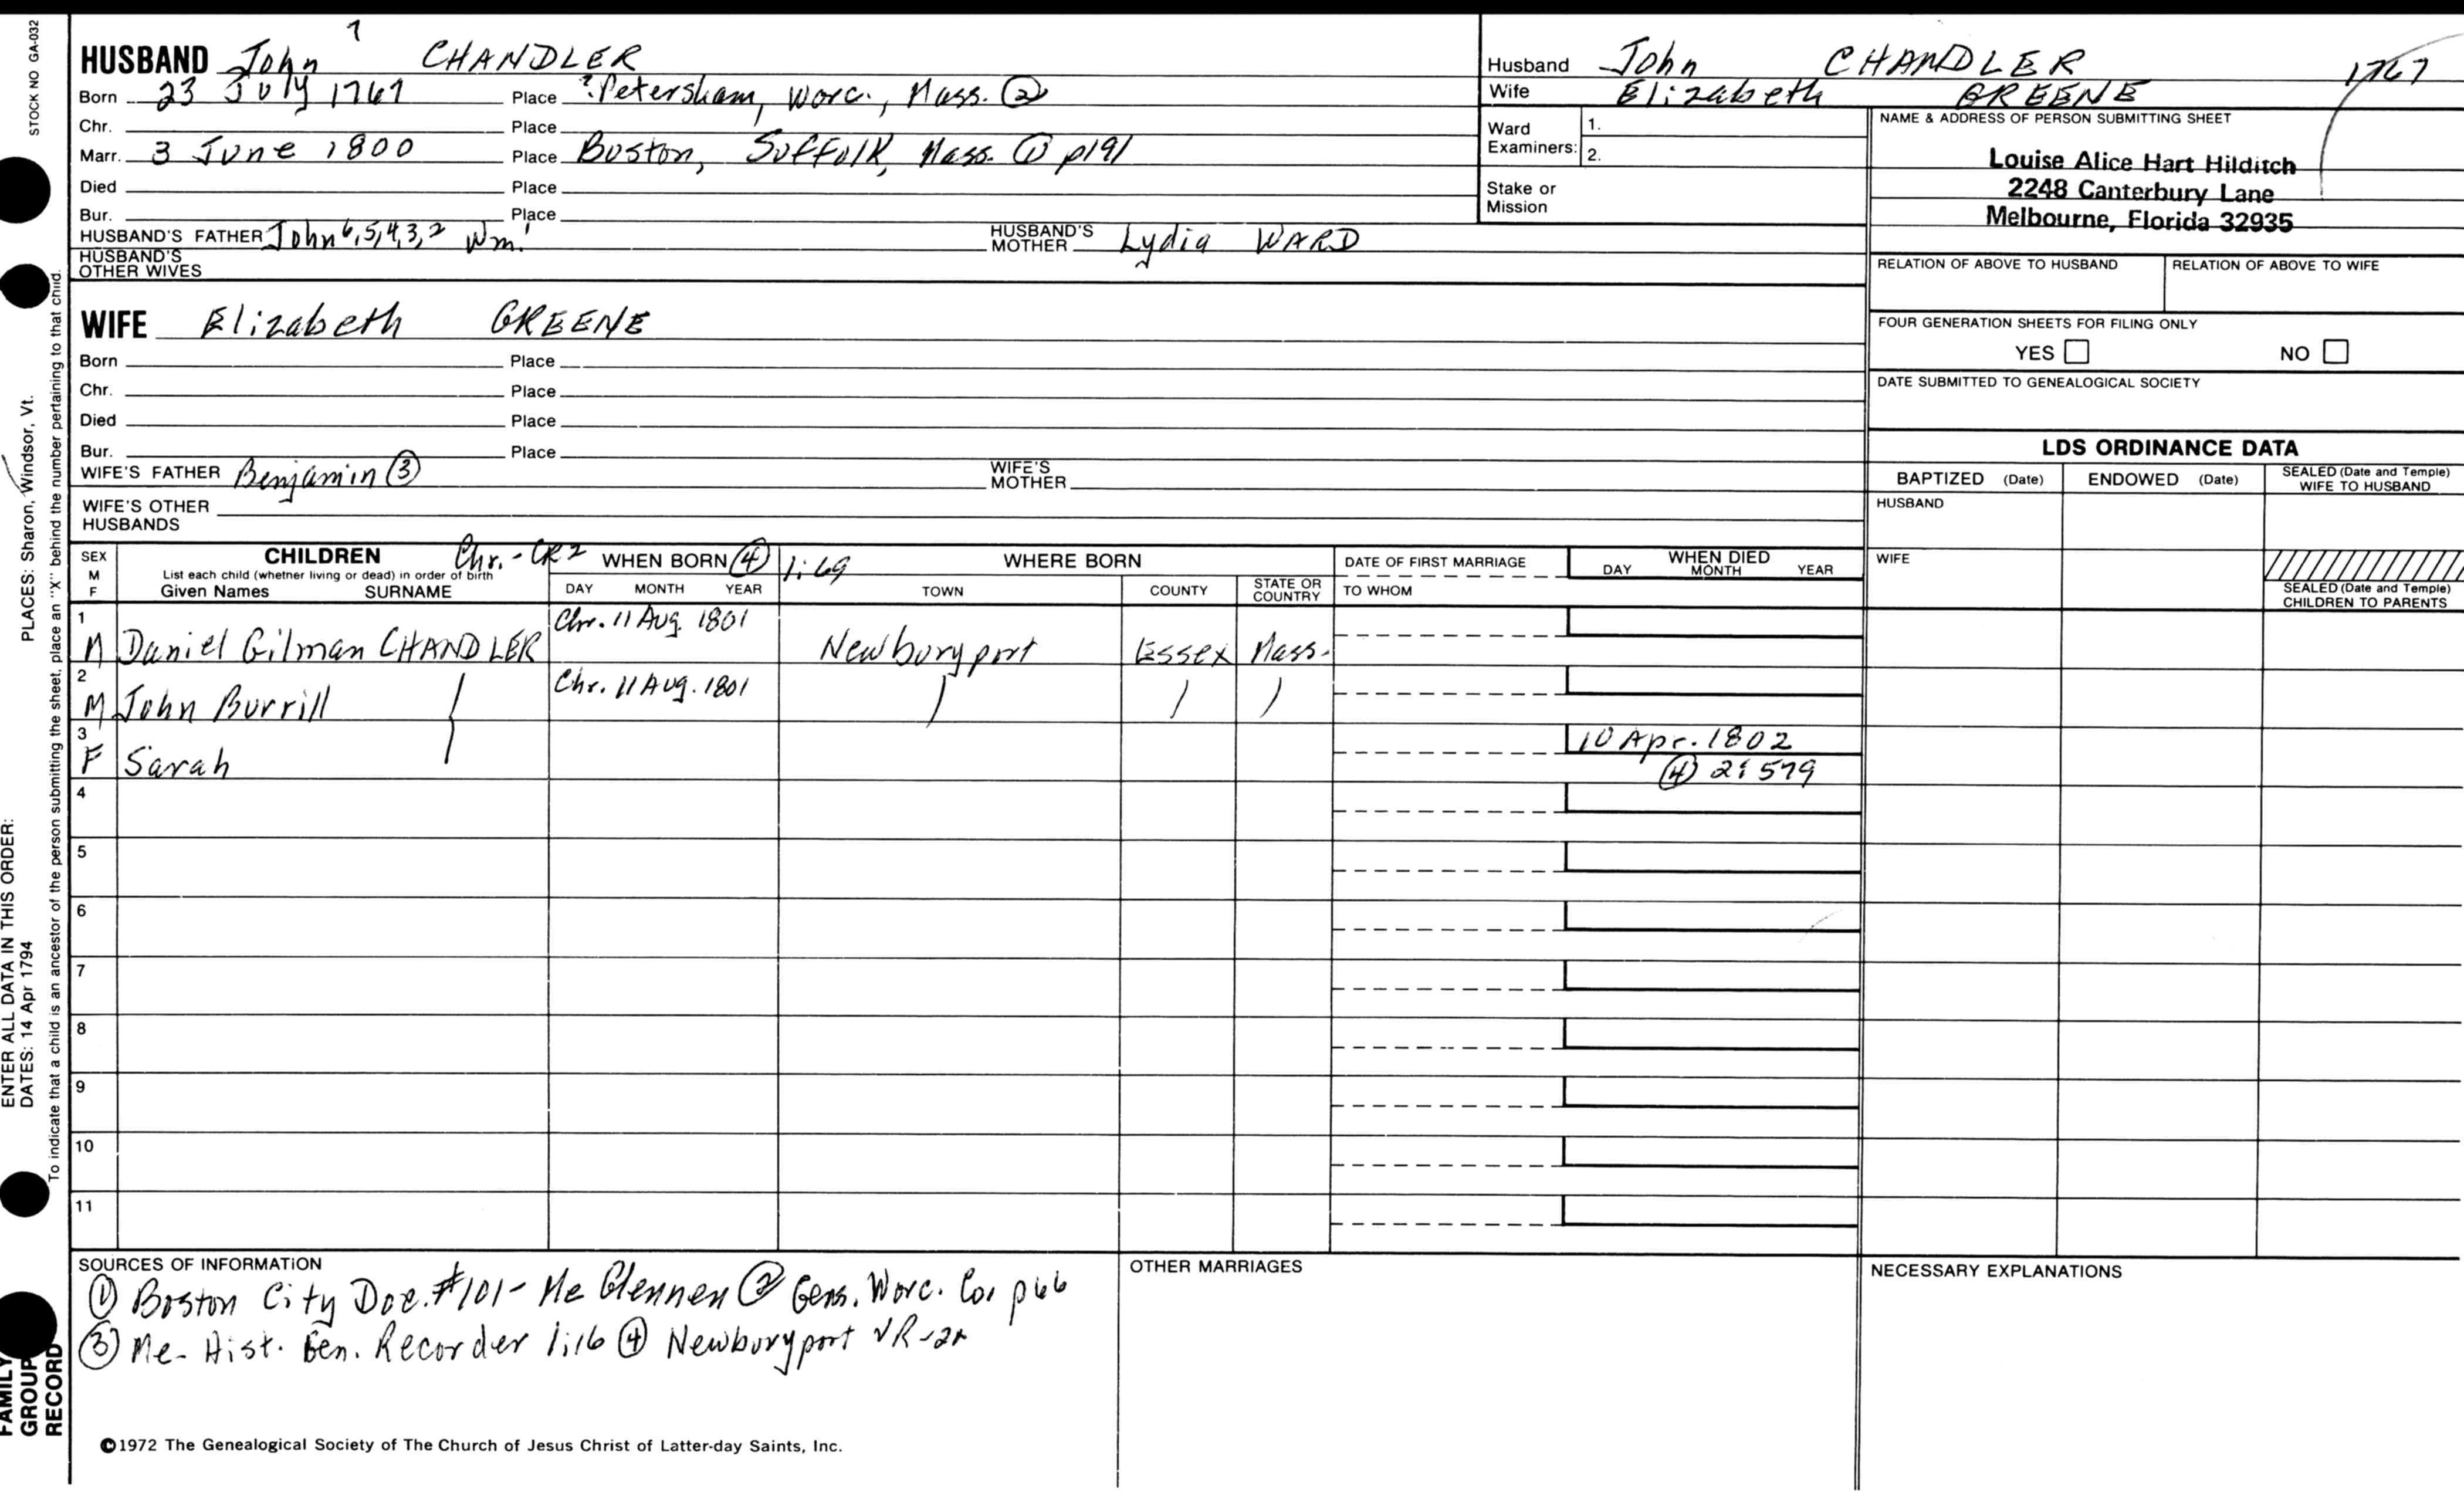 STOCK NO GA-032
HUSBAND John 7 CHANDLER
Born 23 July 1767 Place ?Petersham, Worc., Mass. ②
Chr. Place
Marr. 3 June 1800 Place Boston, Suffolk, Mass. ① p191
Died Place
Bur. Place
HUSBAND'S FATHER John 6,5,4,3,2 Wm.1 HUSBAND'S MOTHER Lydia WARD
HUSBAND'S OTHER WIVES
WIFE Elizabeth GREENE
Born Place
Chr. Place
Died Place
Bur. Place
WIFE'S FATHER Benjamin ③ WIFE'S MOTHER
WIFE'S OTHER HUSBANDS
Husband John CHANDLER 1767
Wife Elizabeth GREENE
Ward Examiners: 1.
2.
Stake or Mission
NAME & ADDRESS OF PERSON SUBMITTING SHEET
Louise Alice Hart Hilditch
2248 Canterbury Lane
Melbourne, Florida 32935
RELATION OF ABOVE TO HUSBAND RELATION OF ABOVE TO WIFE
FOUR GENERATION SHEETS FOR FILING ONLY
YES NO
DATE SUBMITTED TO GENEALOGICAL SOCIETY
LDS ORDINANCE DATA
BAPTIZED (Date) ENDOWED (Date) SEALED (Date and Temple) WIFE TO HUSBAND
HUSBAND
WIFE
SEALED (Date and Temple) CHILDREN TO PARENTS
SEX M F
CHILDREN Chr.-CR2 WHEN BORN ④ 1:69 WHERE BORN DATE OF FIRST MARRIAGE WHEN DIED
List each child (whether living or dead) in order of birth
Given Names SURNAME DAY MONTH YEAR TOWN COUNTY STATE OR COUNTRY TO WHOM DAY MONTH YEAR
1 M Daniel Gilman CHANDLER Chr. 11 Aug. 1801 Newburyport Essex Mass.
2 M John Burrill Chr. 11 Aug. 1801
3 F Sarah 10 Apr. 1802
④ 2:579
4
5
6
7
8
9
10
11
SOURCES OF INFORMATION
① Boston City Doc. #101- Mc Glennen ② Gens. Worc. Co. p66
③ Me- Hist. Gen. Recorder 1:16 ④ Newburyport VR-2
OTHER MARRIAGES
NECESSARY EXPLANATIONS
©1972 The Genealogical Society of The Church of Jesus Christ of Latter-day Saints, Inc.
FAMILY GROUP RECORD
ENTER ALL DATA IN THIS ORDER:
DATES: 14 Apr 1794
PLACES: Sharon, Windsor, Vt.
To indicate that a child is an ancestor of the person submitting the sheet, place an "X" behind the number pertaining to that child.